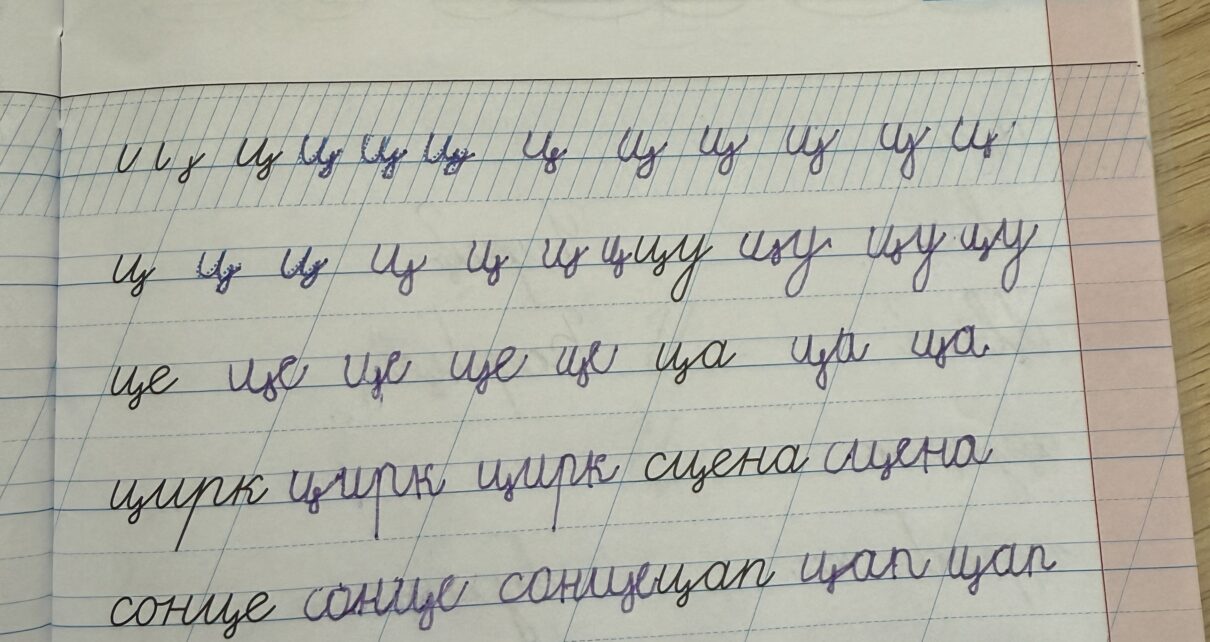 ц ц ц ц ц ц ц ц ц ц ц
ц ц ц ц ц ц ц цу цу цу цу
це це це це це ца ца ца
цирк цирк цирк сцена сцена
сонце сонце сонце цап цап цап